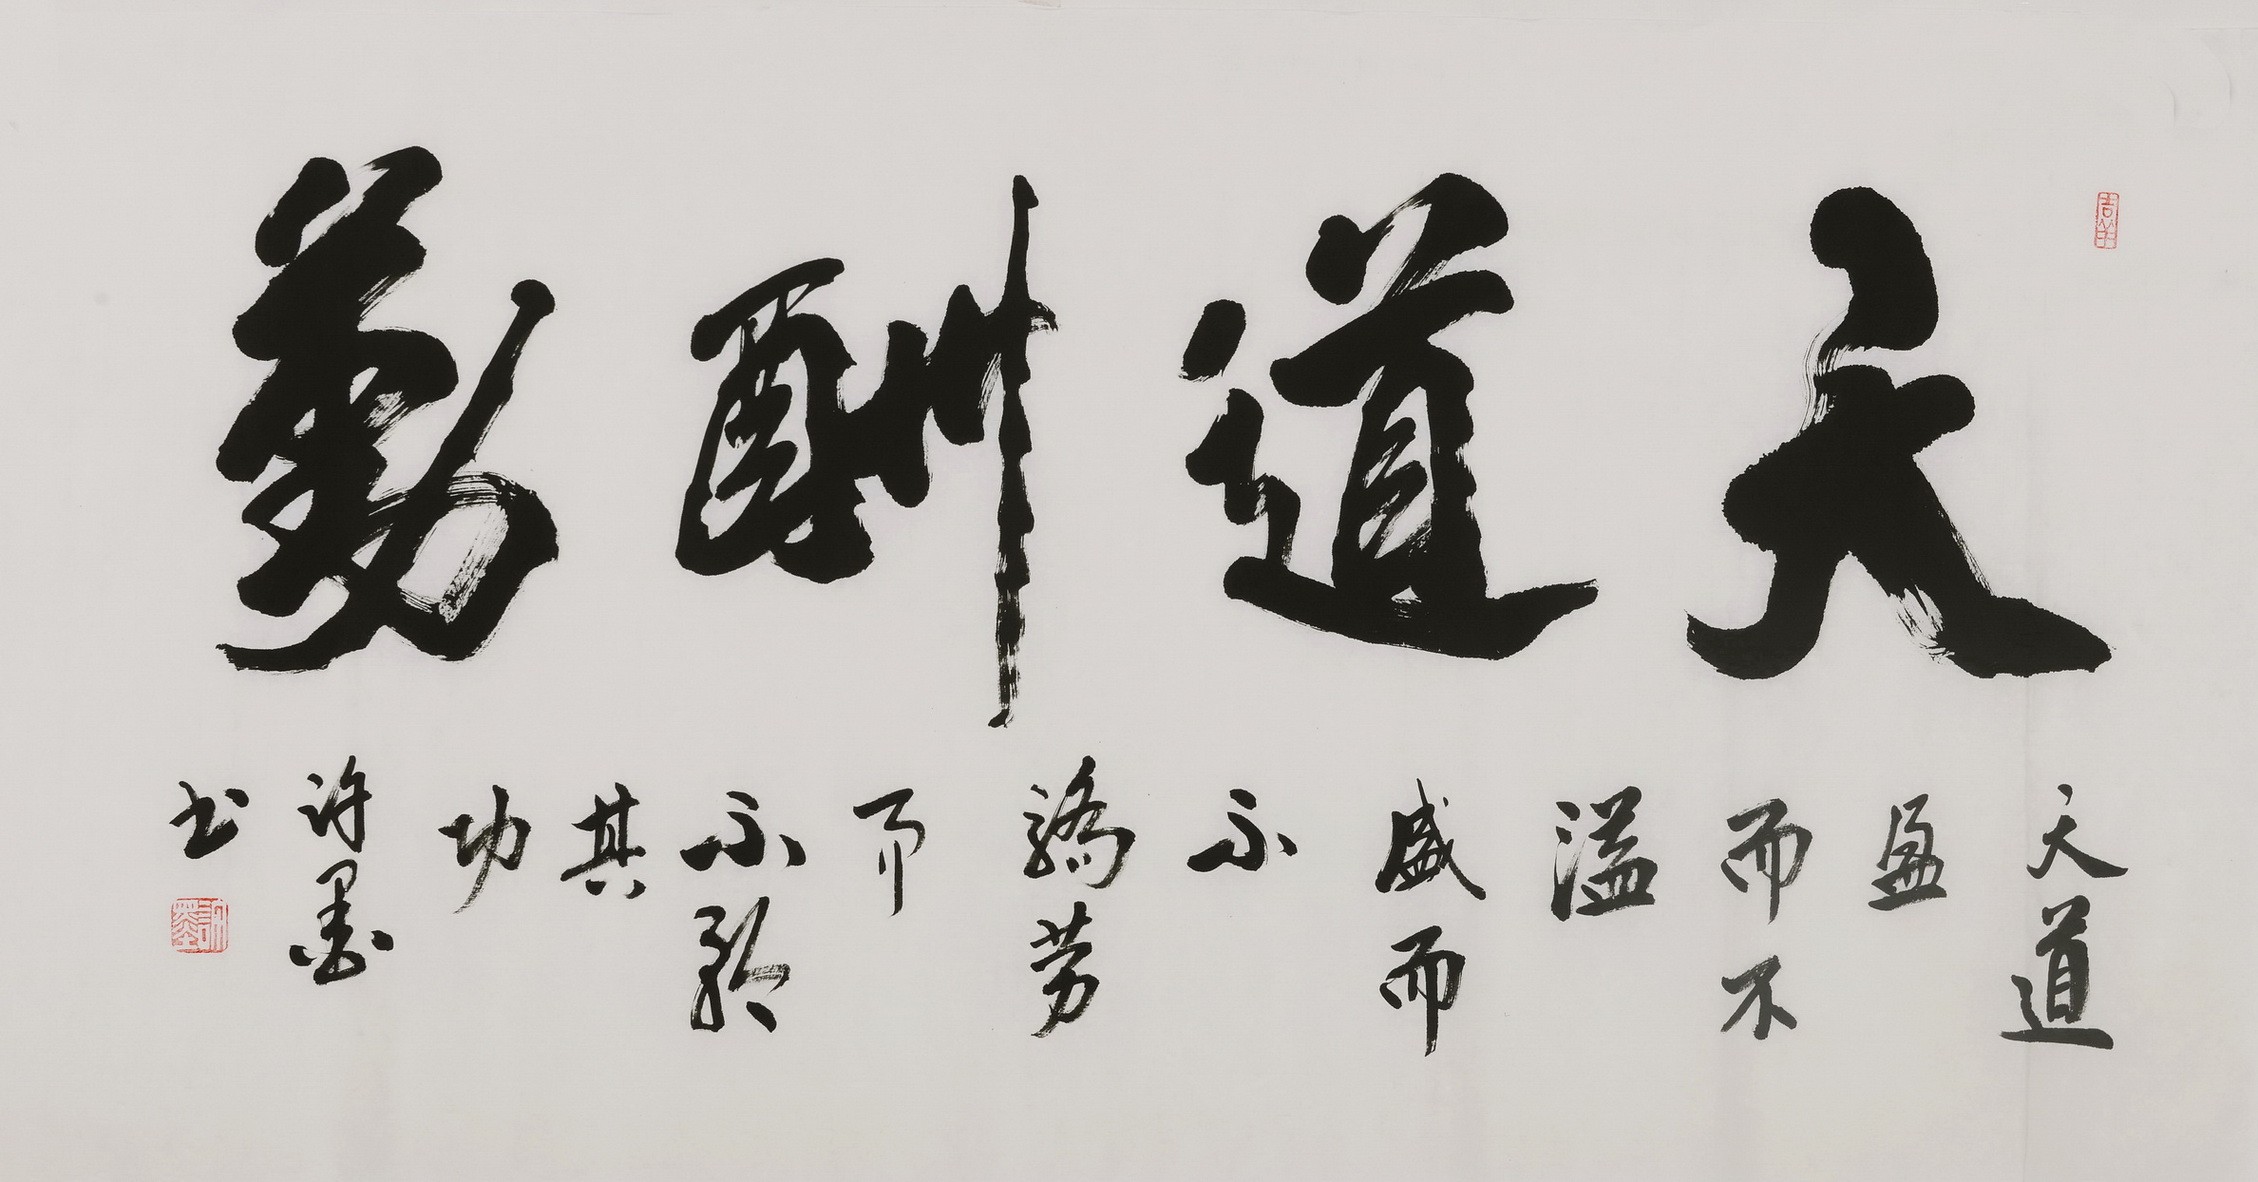 天道酬勤
天道
盈
而不
溢
盛而
不
骄劳
而
不矜
其
功
许墨
书
許墨